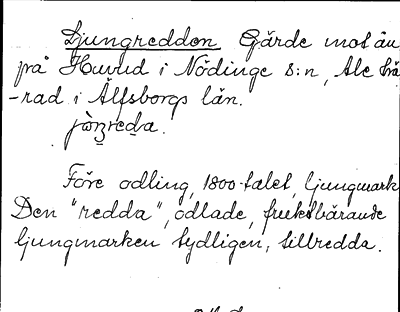 Ljungreddon Gärde mot ån
på Huvud i Nödinge s:n, Ale hä
-rad i Älfsborgs län.
Före odling, 1800-talet, ljungmark
Den "redda", odlade, fruktbärande
ljungmarken tydligen, tillredda.